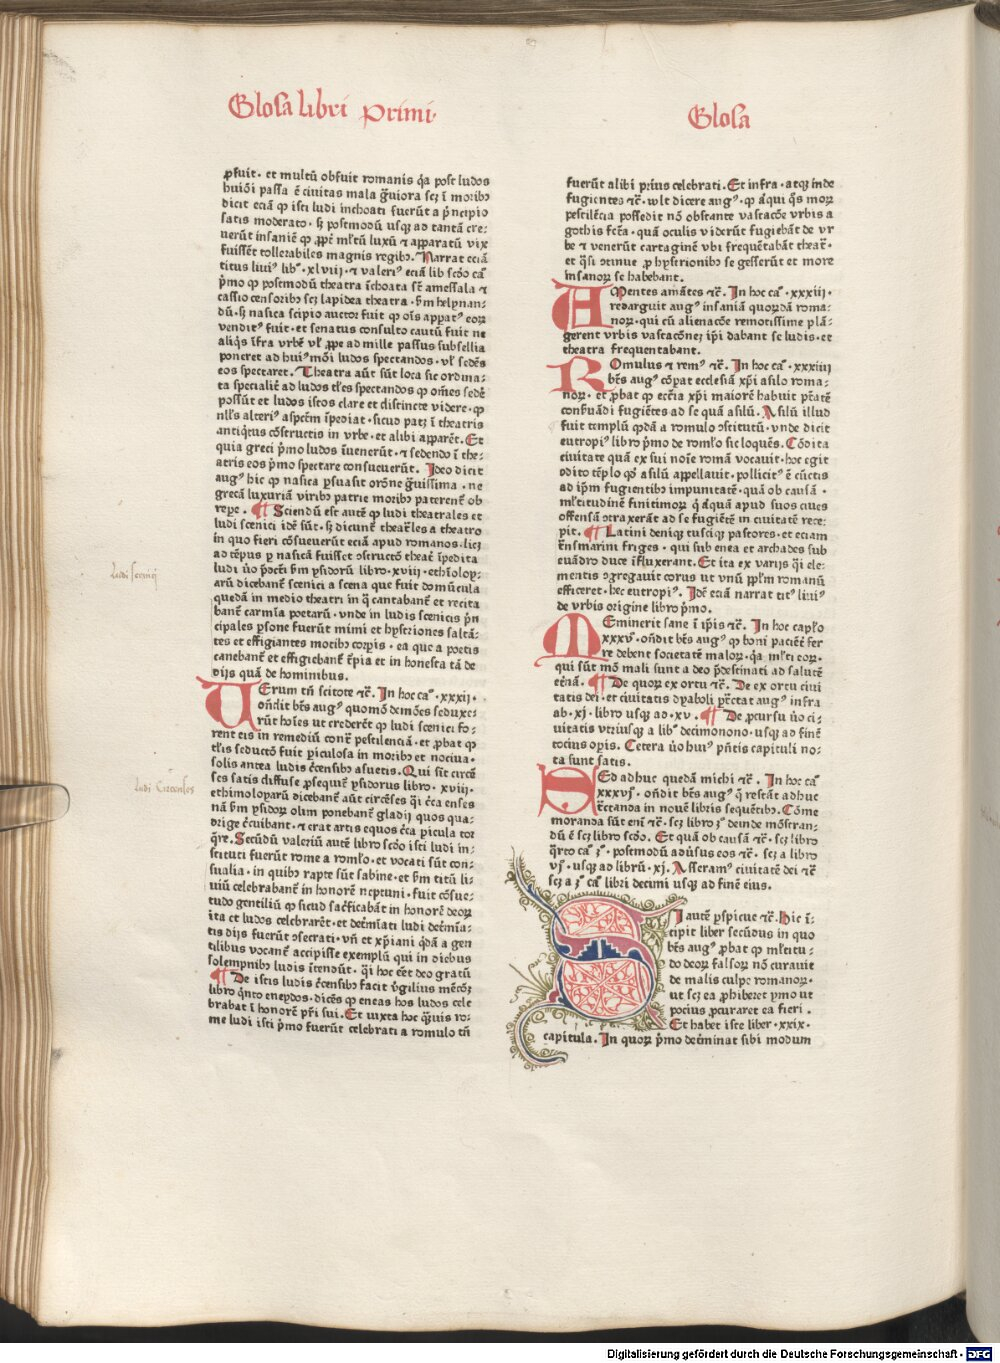 Glosa libri Primi·
Glosa
ꝓfuit · et multū obfuit romanis q̄a post ludos
huiꝰōi passa ē ciuitas mala g̈uiora scꝫ ī moribꝫ
dicit eciā ꝙ isti ludi inchoati fuerūt a p̄ncipio
satis moderato · sꝫ postmodū usqꝫ ad tantā cre⸗
uerūt insaniē ꝙ ꝓpt̄ ml̄tū luxū ⁊ apparatū vix
fuissēt tollerabiles magnis regibꝫ. Narrat eciā
titus liuiꝰ libꝰ · xlviij · ⁊ valeriꝰ eciā lib scd̄o ca°
p̄mo ꝙ postmodū theatra īchoata sūt a messalla ⁊
cassio censoribꝫ scꝫ lapidea theatra · ẜm helynan⸗
dū · sꝫ nasica scipio auctor fuit ꝙ oīs appatꝰ eoꝝ
venditꝰ fuit · et senatus consulto cautū fuit ne
aliqͥs īfra vrbē vl̄ ꝓpe ad mille passus subsellia
poneret ad huiꝰmōi ludos spectandos · vl̄ sedēs
eos spectaret. Theatra aūt sūt loca sic ordina⸗
ta specialit̄ ad ludos tl̄es spectandos ꝙ om̄es sedē
possūt et ludos istos clare et distincte videre · ꝙ
nll̄s alteriꝰ aspcm̄ īpediat · sicud patꝫ ī theatris
antiqͥtus cōstructis in vrbe · et alibi apparēt. Et
quia greci p̄mo ludos īuenerūt · ⁊ sedendo ī the⸗
atris eos p̄mo spectare consueuerūt. Ideo dicit
augꝰ hic ꝙ nasica ꝑsuasit orōne g̈uissima · ne
grecā luxuriā viribꝫ patrie moribꝫ paterent̄ ob
repe. ¶ Sciendū est autē ꝙ ludi theatrales et
ludi scenici idē sūt · sꝫ dicunt̄ theatͬles a theatro
in quo fieri cōsueuerūt eciā apud romanos · licꝫ
ad tēpus ꝑ nasicā fuisset ↄstructō theat͛ īpedita
ludi ṽo p̄dcti ẜm ysidorū libro · xviij · ethīolog⸗
arū dicebant̄ scenici a scena que fuit domūcula
quedā in medio theatri in q̄ cantabant̄ et recita
bant̄ carmīa poetarū · vnde in ludis scenicis p̄n
cipales ꝑsone fuerūt mimi et hystriones saltā⸗
tes et effigiantes motibꝫ corpis · ea que a poetis
canebant̄ et effigiebant̄ t̄pia et in honesta tā de
dijs quā de hominibus.
VErum tn̄ scitote ⁊c̄. In hoc ca° · xxxij ·
on̄dit bt̄s augꝰ quomō demōes seduxe⸗
rūt hoīes ut crederēt ꝙ ludi scenici fo⸗
rent eis in remediū contͣ pestilenciā · et ꝓbat ꝙ
tl̄is seductō fuit ꝑiculosa in moribꝫ et nociua ·
solis antea ludis cͥcensibꝫ asuetis. Qui sīt circē
ses satis diffuse ꝓsequit̄ ysidorus libro · xviij ·
ethimoloꝝarū dicebant̄ aūt circēses qͥ cͥca enses
nā ẜm ysidoꝝ olim ponebant̄ gladij quos qua⸗
drige cͥcuibant · ⁊ erat artis equos cͥca ꝑicula tor
q̄re. Secūdū valeriū autē libro scd̄o isti ludi in⸗
stituti fuerūt rome a romlo · et vocati sūt con⸗
sualia · in quibꝫ rapte sūt sabine · et ẜm titū li⸗
uiū celebrabant̄ in honorē neptuni · fuit cōsue⸗
tudo gentiliū ꝙ sicud sac̄ficabāt in honorē deoꝝ
ita et ludos celebrarēt · et det̄miati ludi det̄mīa⸗
tis dijs fuerūt ↄsecrati · vn̄ et xp̄iani qͥdā a gen
tilibus vocant̄ accipisse exemplū qui in diebus
solempnibꝫ ludis ītendūt · qͥ hoc eēt deo gratū
¶ De istis ludis cͥcensibꝫ facit v̄gilius mēcōꝫ
libro qͥnto eneydos · dicēs ꝙ eneas hos ludos cele
brabat ī honorē pr̄i sui. Et iuxta hoc qͣuis ro⸗
me ludi isti p̄mo fuerūt celebrati a romulo tn̄
Ludi scenicj
Ludi Circenses
fuerūt alibi prius celebrati. Et infra · atqꝫ inde
fugientes ⁊c̄ · vult dicere augꝰ · ꝙ aͥqui qͦs morꝫ
pestilēcia possedit nō obstante vastacōe vrbis a
gothis fcā · quā oculis viderūt fugiebāt de vr
be ⁊ venerūt cartaginē vbi frequētabāt theatͬ ·
et qͣsi ↄtinue ꝓ hystrionibꝫ se gesserūt et more
insanoꝝ se habebant.
AMentes amātes ⁊c̄. In hoc ca° · xxxiij ·
redarguit augꝰ insaniā quoꝝdā roma⸗
noꝝ · qui cū alienacōe remotissime plā⸗
gerent vrbis vastacōneꝫ ip̄i dabant se ludis · et
theatra frequentabant.
ROmulus ⁊ remꝰ ⁊c̄. In hoc ca° · xxxiiij
bt̄s augꝰ cōꝑat ecclesiā xp̄i asilo roma⸗
noꝝ · et ꝓbat ꝙ ecc̄ia xp̄i maiorē habuit ptātē
conẜuādi fugiētes ad se quā asilū. Asilū illud
fuit templū qd̄dā a romulo ↄstitutū · vnde dicit
eutropiꝰ libro p̄mo de romlo sic loquēs. Cōdita
ciuitate quā ex sui noīe romā vocauit · hoc egit
ↄdito tēplo qd̄ asilū appellauit · pollicitꝰ ē cūctis
ad ip̄m fugientibꝫ impunitatē · quā ob causā ·
ml̄titudinē finitimoꝝ qͥ aͥquā apud suos ciues
offensā ↄtraxerāt ad se fugiētē in ciuitatē rece⸗
pit. ¶ Latini deniqꝫ tusciqꝫ pastores · et eciam
tͣnsmarini friges · qui sub enea et archades sub
euādro duce īfluxerant. Et ita ex varijs qͥ ele⸗
mentis ↄgregauit corus ut vnū pp̄lm romanū
efficeret · hec eutropiꝰ. Idē eciā narrat titꝰ liuiꝰ
de vrbis origine libro p̄mo.
MEminerit sane ī ip̄is ⁊c̄. In hoc cap̄lo
xxxv° · on̄dit bt̄s augꝰ ꝙ boni paciēt̄ fer
re debent societatē maloꝝ · qͣ ml̄ti eoꝝ ·
qui sūt mō mali sunt a deo p̄destinati ad salutē
et̄nā. ¶ De quoꝝ ex ortu ⁊c̄. De ex ortu ciui
tatis dei · et ciuitatis dyaboli ptͣctat augꝰ infra
ab · xj · libro usqꝫ ad · xv. ¶ De ꝓcursu ṽo ci⸗
uitatis vtriusqꝫ a libꝰ decimonono · usqꝫ ad finē
tocius opis. Cetera ṽo huiꝰ pn̄tis capituli no⸗
ta sunt satis.
SEd adhuc quedā michi ⁊c̄. In hoc ca°
xxxvj° · on̄dit bt̄s augꝰ q̄ restāt adhuc
tͣctanda in nouē libris sequētibꝫ. Cōme
moranda sūt enī ⁊c̄ · scꝫ libro ꝫ° deinde mōstran⸗
dū ē scꝫ libro scd̄o. Et quā ob causā ⁊c̄ · scꝫ libro
q̄rto ca° ꝫ° · postmodū adūsus eos ⁊c̄ · scꝫ a libro
vj° · usqꝫ ad librū · xj. Asseramꝰ ciuitatē dei ⁊c̄
scꝫ a ꝫ° ca° libri decimi usqꝫ ad finē eius.
SI autē ꝑspicue ⁊c̄. Hic ī⸗
cipit liber secūdus in quo
bt̄s augꝰ ꝓbat ꝙ ml̄titu⸗
do deoꝝ falsoꝝ nō curauit
de malis culpe romanoꝝ ·
ut scꝫ ea ꝓhiberet ymo ut
pocius ꝓcuraret ea fieri.
Et habet iste liber · xxix ·
capitula. In quoꝝ p̄mo det̄minat sibi modum
Digitalisierung gefördert durch die Deutsche Forschungsgemeinschaft · DFG